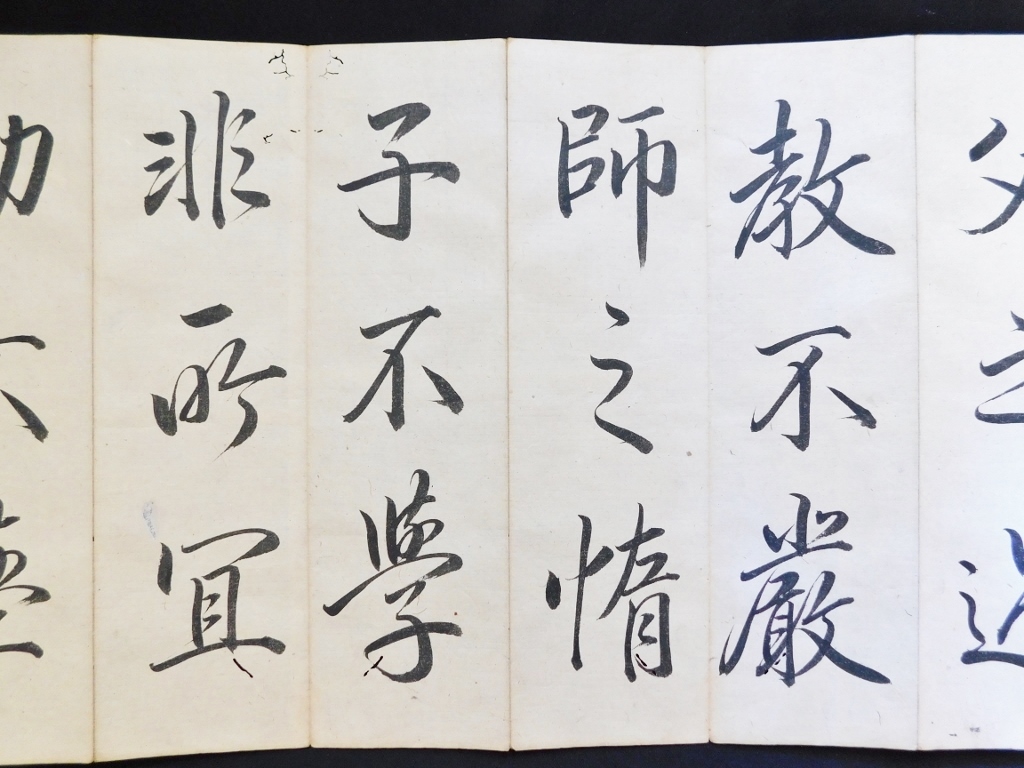 父之
教不嚴
師之惰
子不學
非所宜